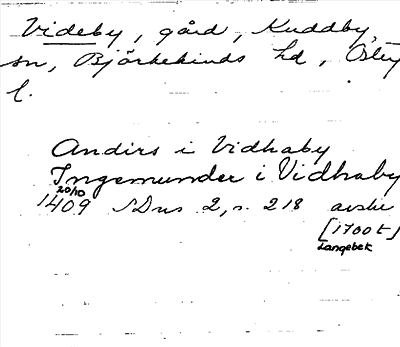 Videby, gård, Kuddby
sn, Björkekinds hd, Östg
l.
Andirs i Vidhaby
Ingemunder i Vidhaby
20/10
1409 SDns 2, s. 218 avskr
[1700t]
Langebek